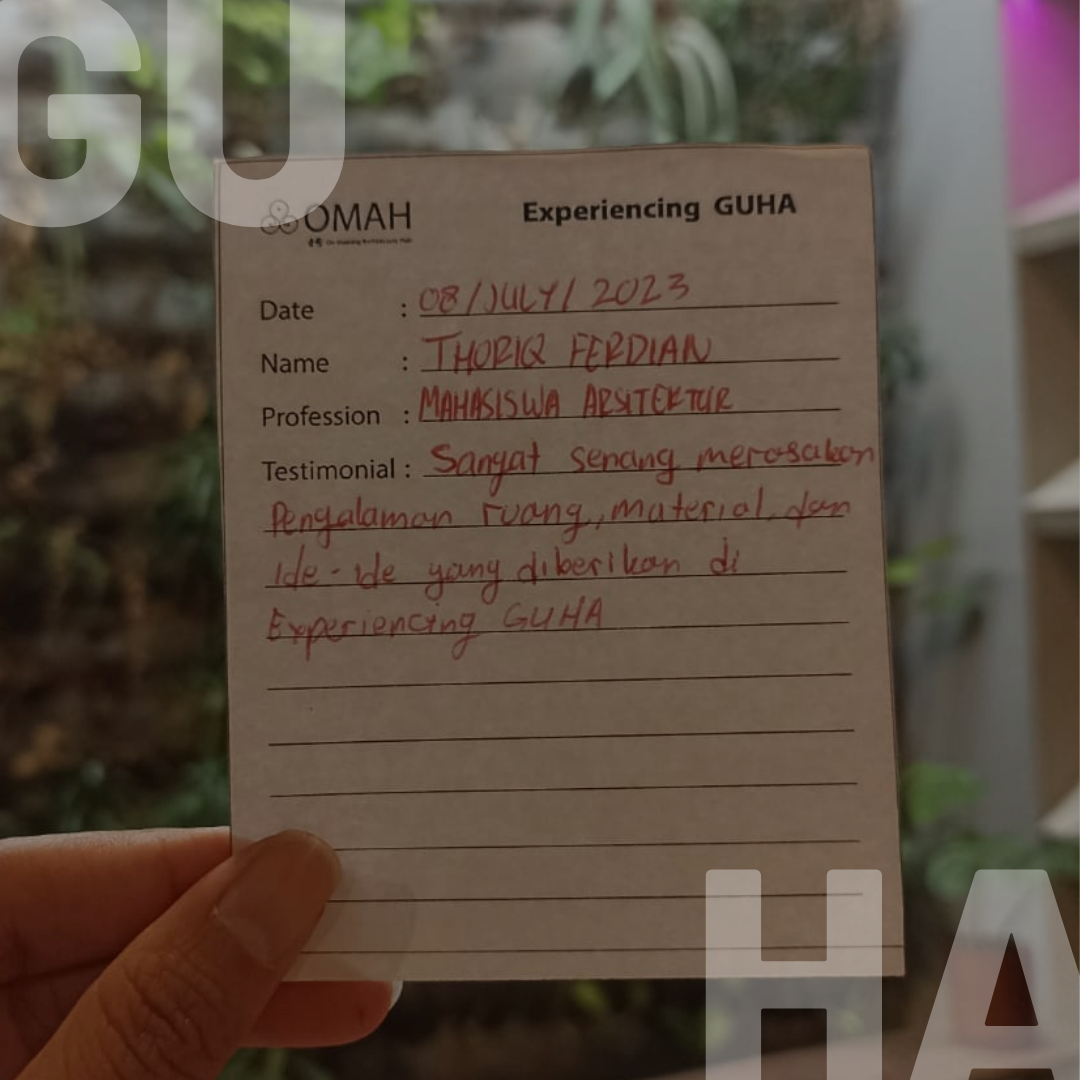 GU
OMAH
Experiencing GUHA
Date : 08/JULY/2023
Name : THORIQ FERDIAN
Profession : MAHASISWA ARSITEKTUR
Testimonial : Sangat senang merasakan
Pengalaman ruang, material, dan
Ide-ide yang diberikan di
Experiencing GUHA
HA